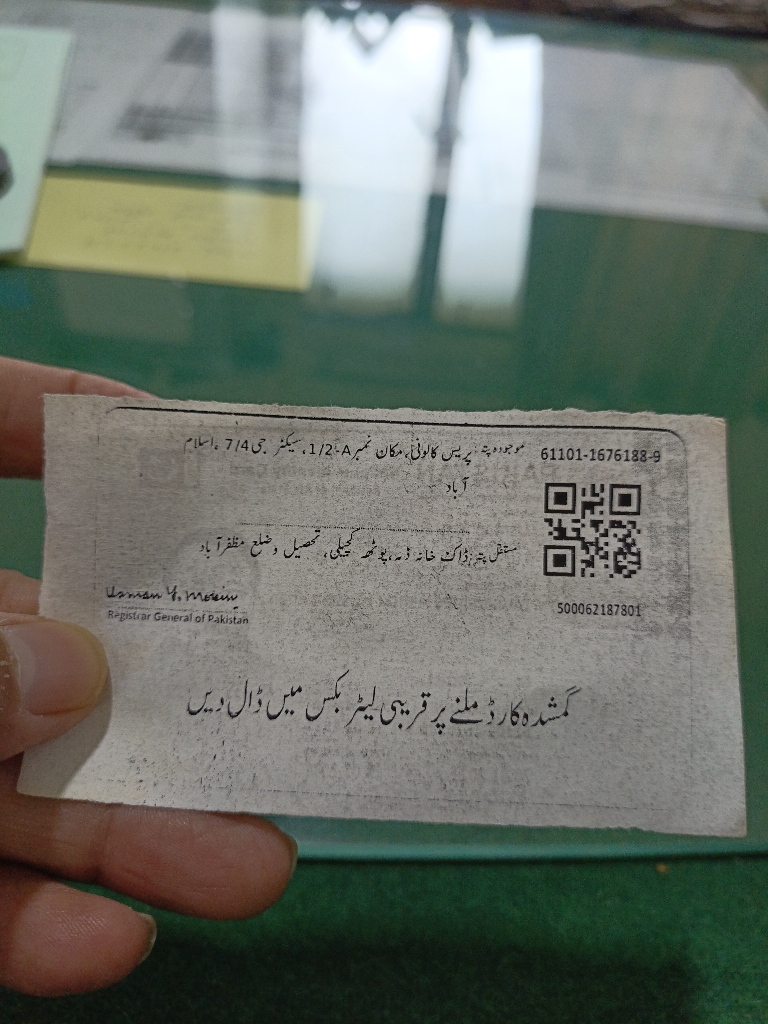 61101-1676188-9
موجودہ پتہ: پریس کالونی، مکان نمبر 1/2-A، سیکٹر جی 7/4، اسلام
آباد
مستقل پتہ: ڈاک خانہ ڈنہ، پوٹھہ کچیلی، تحصیل و ضلع مظفر آباد
500062187801
Registrar General of Pakistan
گمشدہ کارڈ ملنے پر قریبی لیٹر بکس میں ڈال دیں